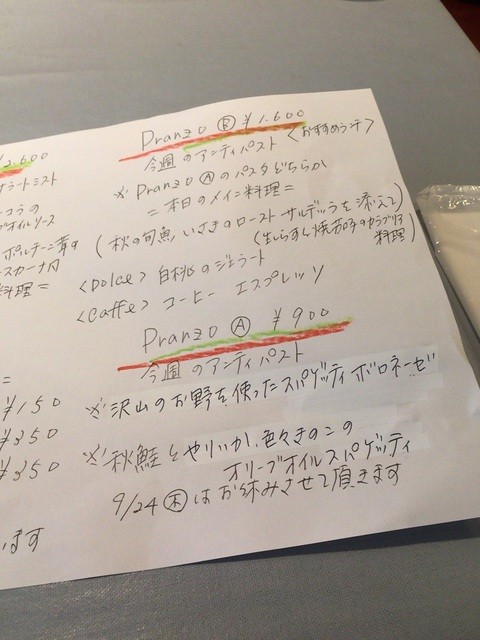 Pranzo Ⓑ ¥1.600
今週のアンティパスト <おすすめランチ>
※ Pranzo Ⓐ のパスタどちらか
=本日のメイン料理=
(秋の旬魚,いさきのロースト サルデッラを添えて)
(生しらすと焼茄子のカラブリア
料理)
<Dolce> 白桃のジェラート
<Caffe> コーヒー エスプレッソ
Pranzo Ⓐ ¥900
今週のアンティパスト
※沢山のお野を使ったスパゲッティ ボロネーゼ
※秋鮭とやりいか、色々きのこの
オリーブオイルスパゲッティ
9/24㊍はお休みさせて頂きます
¥2.600
ラートミスト
コラの
ブオイルソース
ポルチーニ茸の
スカーナ風
料理=
=
¥150
¥350
¥350
います